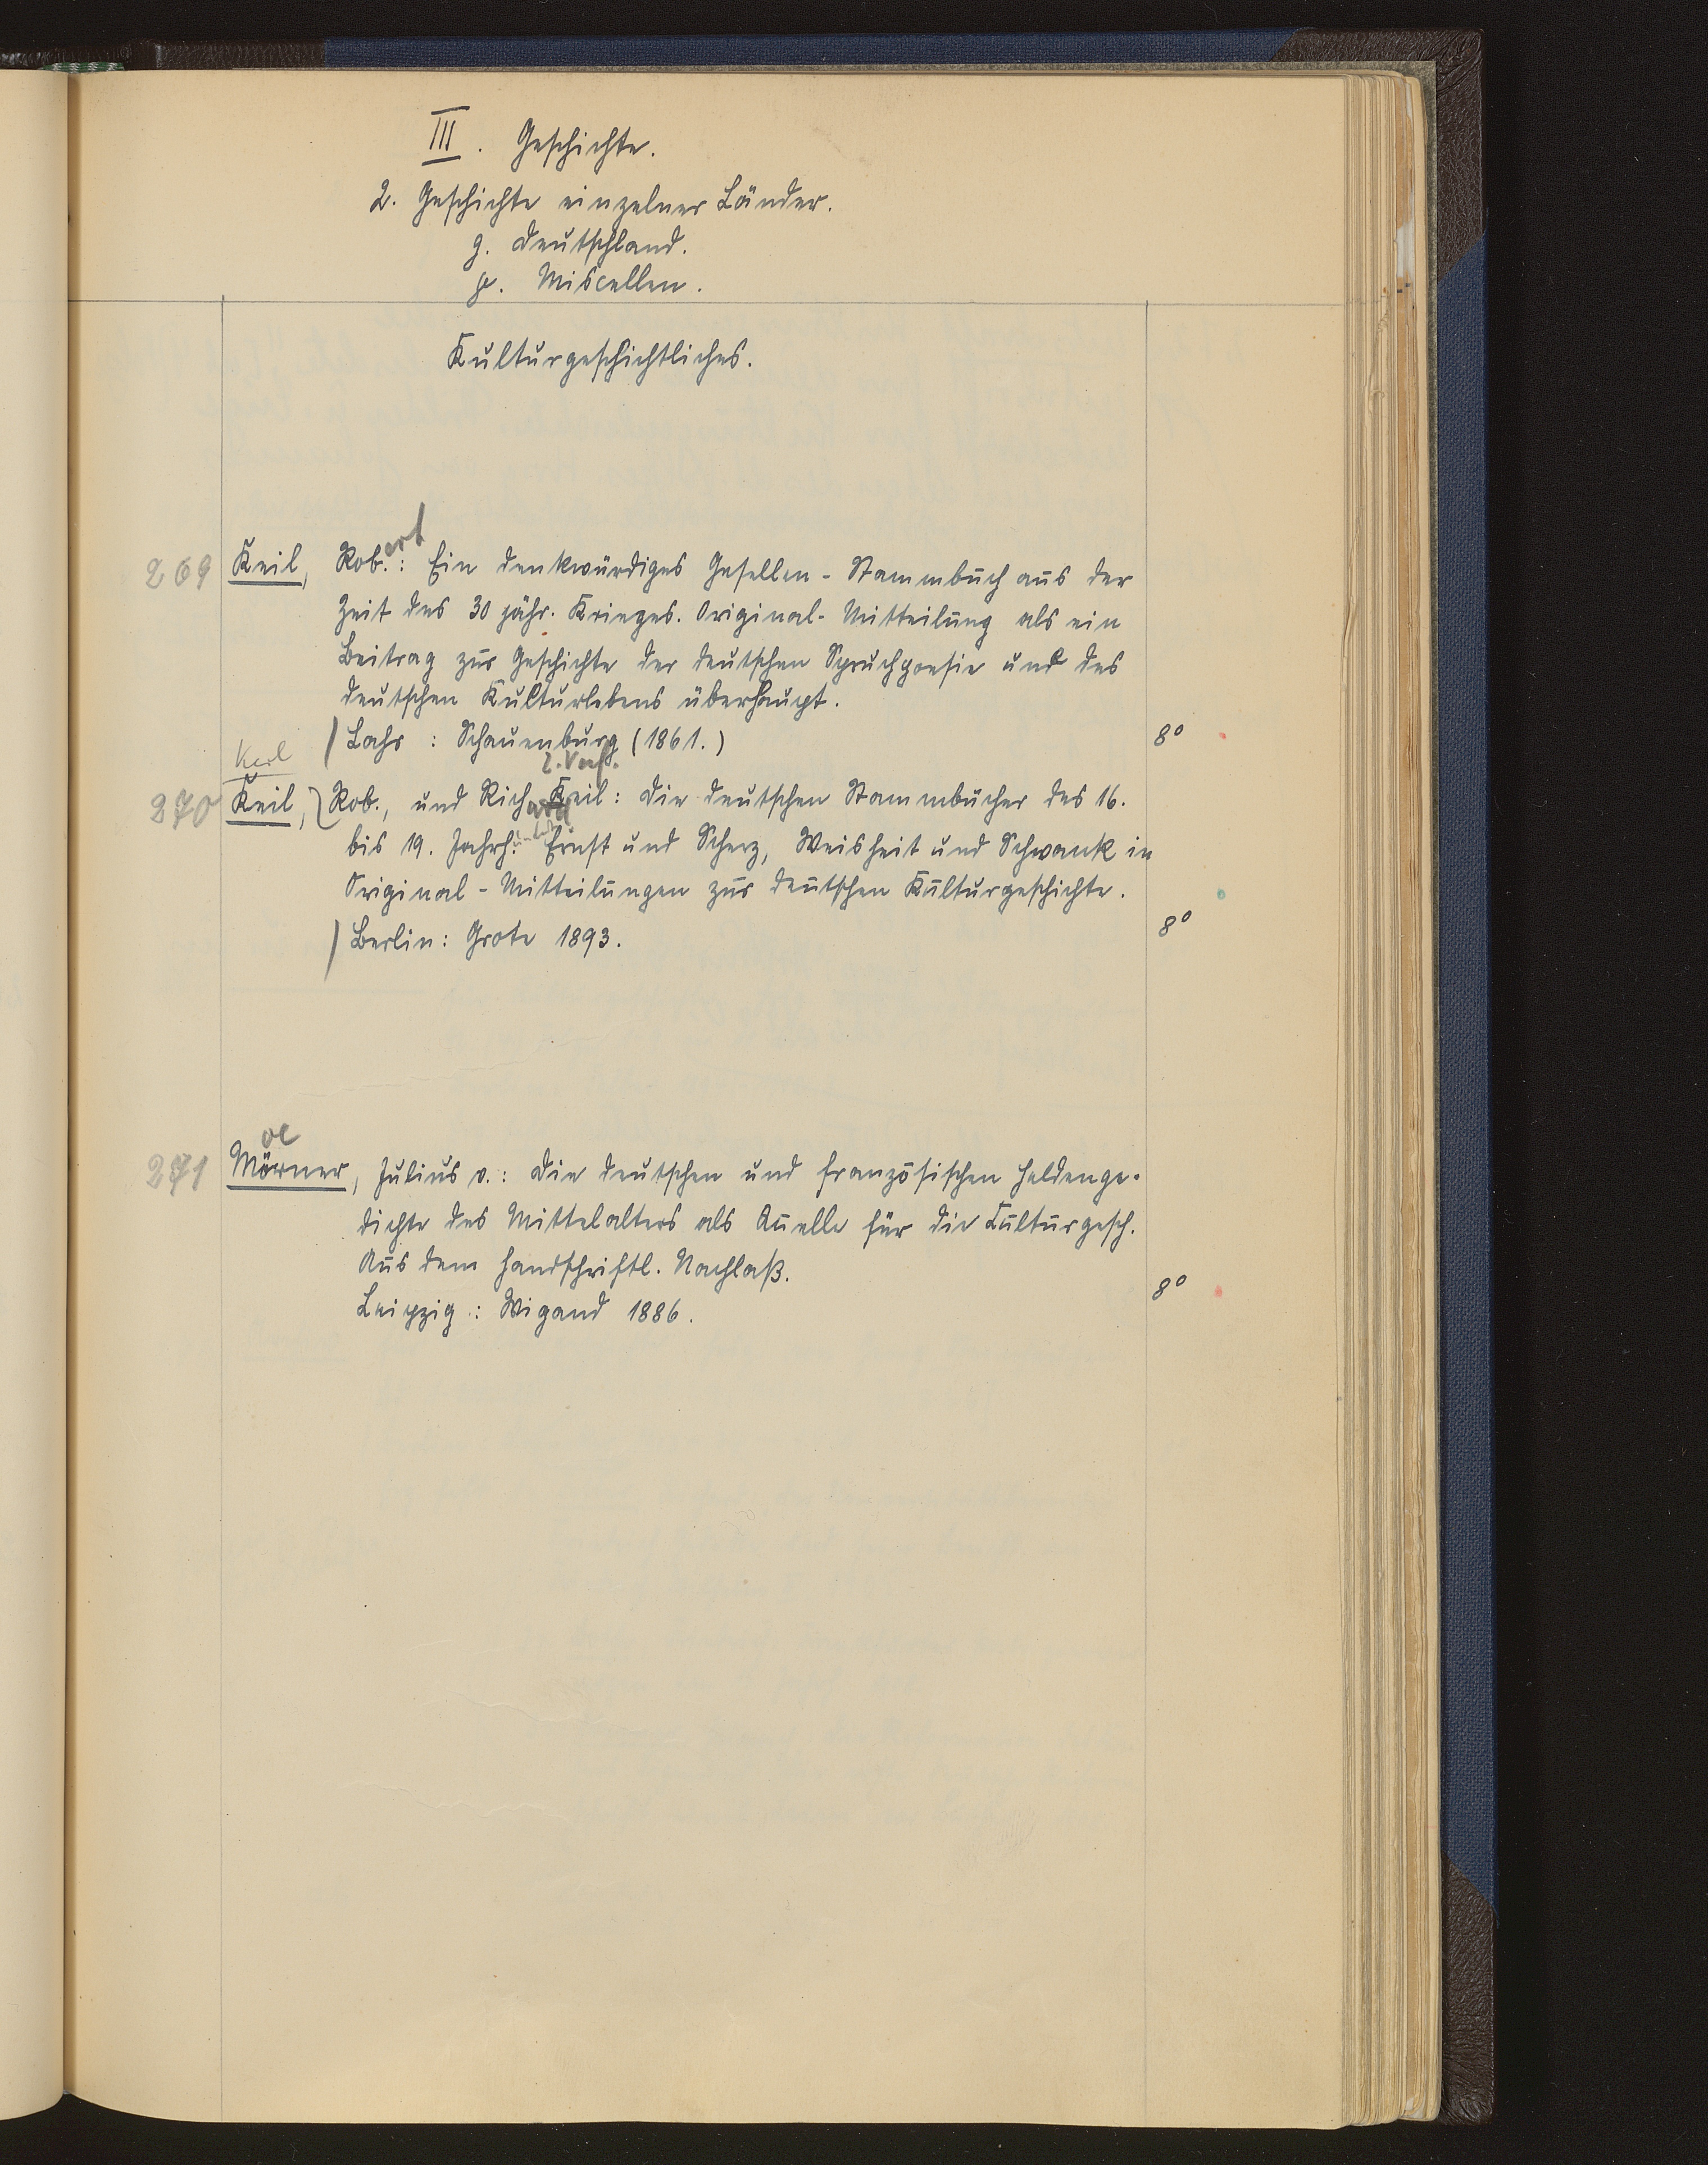 III. Geschichte.
2. Geschichte einzelner Länder.
g. Deutschland.
p. Miscellen.
Kulturgeschichtliches.
269 Keil, Rob.ert: Ein denkwürdiges Gesellen-Stammbuch aus der
Zeit des 30 jähr. Krieges. Original-Mitteilung als ein
Beitrag zur Geschichte der deutschen Spruchpoesie und des
deutschen Kulturlebens überhaupt.
Lahr: Schauenburg (1861.) 8°
Keil
2. Verf.
270 Keil, Rob., und Richard Keil: Die deutschen Stammbücher des 16.
bis 19. Jahrh. Ernst und Scherz, Weisheit und Schwank in
Original-Mitteilungen zur deutschen Kulturgeschichte.
Berlin: Grote 1893. 8°
oe
271 Mörner, Julius v.: Die deutschen und französischen Heldenge-
dichte des Mittelalters als Quelle für die Kulturgesch.
Aus dem handschriftl. Nachlaß.
Leipzig: Wigand 1886. 8°